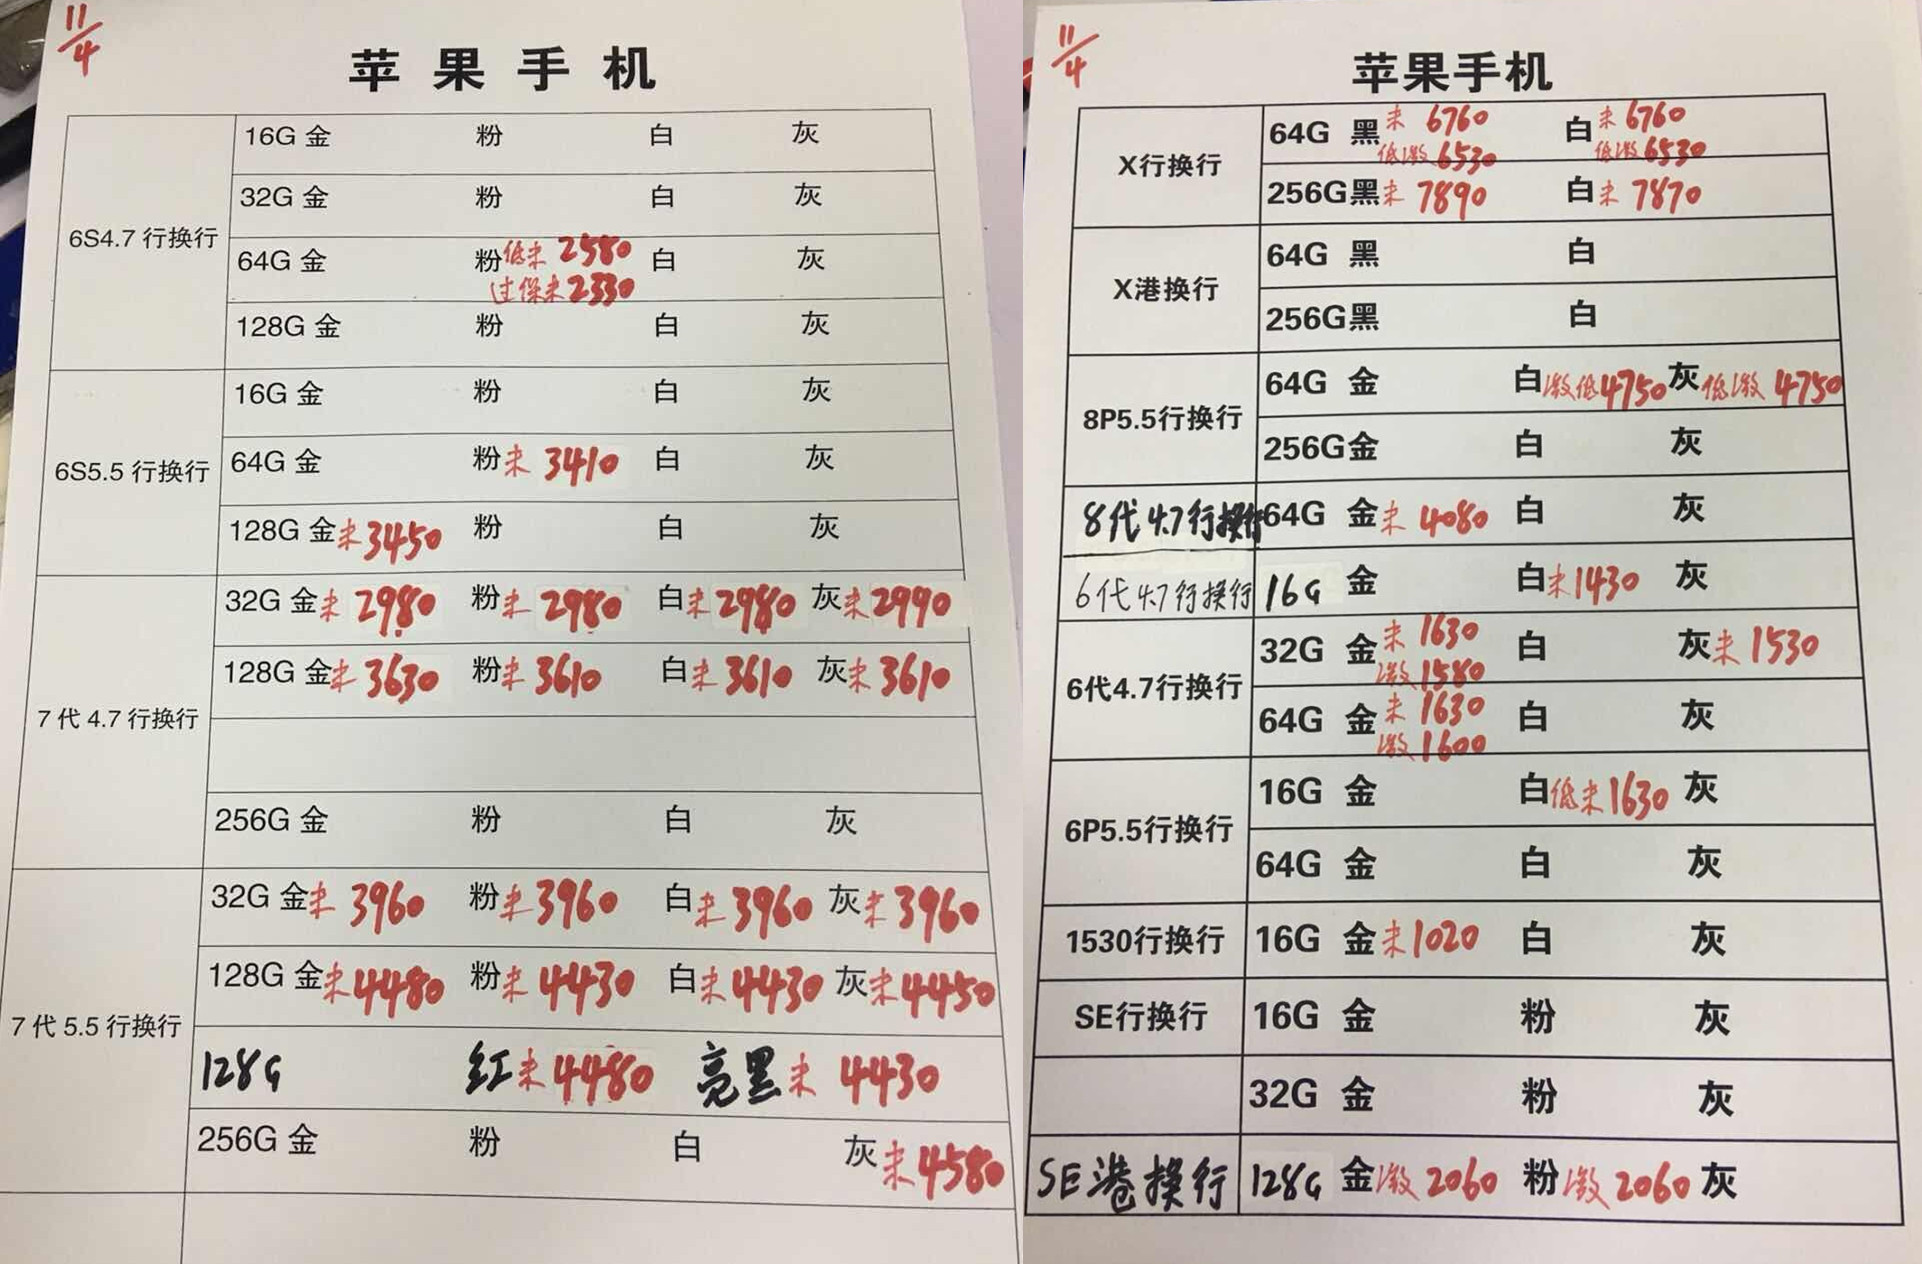 11/4
苹果手机
6S4.7 行换行
16G 金 粉 白 灰
32G 金 粉 白 灰
64G 金 粉低未 2580 白 灰
过保未2330
128G 金 粉 白 灰
6S5.5 行换行
16G 金 粉 白 灰
64G 金 粉未 3410 白 灰
128G 金未3450 粉 白 灰
7 代 4.7 行换行
32G 金未 2980 粉未 2980 白未2980 灰未2990
128G 金未 3630 粉未 3610 白未 3610 灰未 3610
256G 金 粉 白 灰
7 代 5.5 行换行
32G 金未 3960 粉未3960 白未3960 灰未3960
128G 金未4480 粉未 4430 白未4430 灰未4450
128G 红未4480 亮黑未 4430
256G 金 粉 白 灰未4580
11/4
苹果手机
X行换行
64G 黑未 6760 白未 6760
低激 6530 低激 6530
256G黑未 7890 白未 7870
X港换行
64G 黑 白
256G黑 白
8P5.5行换行
64G 金 白激低4750 灰低激 4750
256G金 白 灰
8代4.7行换行 64G 金未 4080 白 灰
6代4.7行换行 16G 金 白未1430 灰
6代4.7行换行
32G 金未 1630 白 灰未 1530
激1580
64G 金未 1630 白 灰
激 1600
6P5.5行换行
16G 金 白低未1630 灰
64G 金 白 灰
1530行换行 16G 金未1020 白 灰
SE行换行 16G 金 粉 灰
32G 金 粉 灰
SE港换行 128G 金激2060 粉激2060 灰